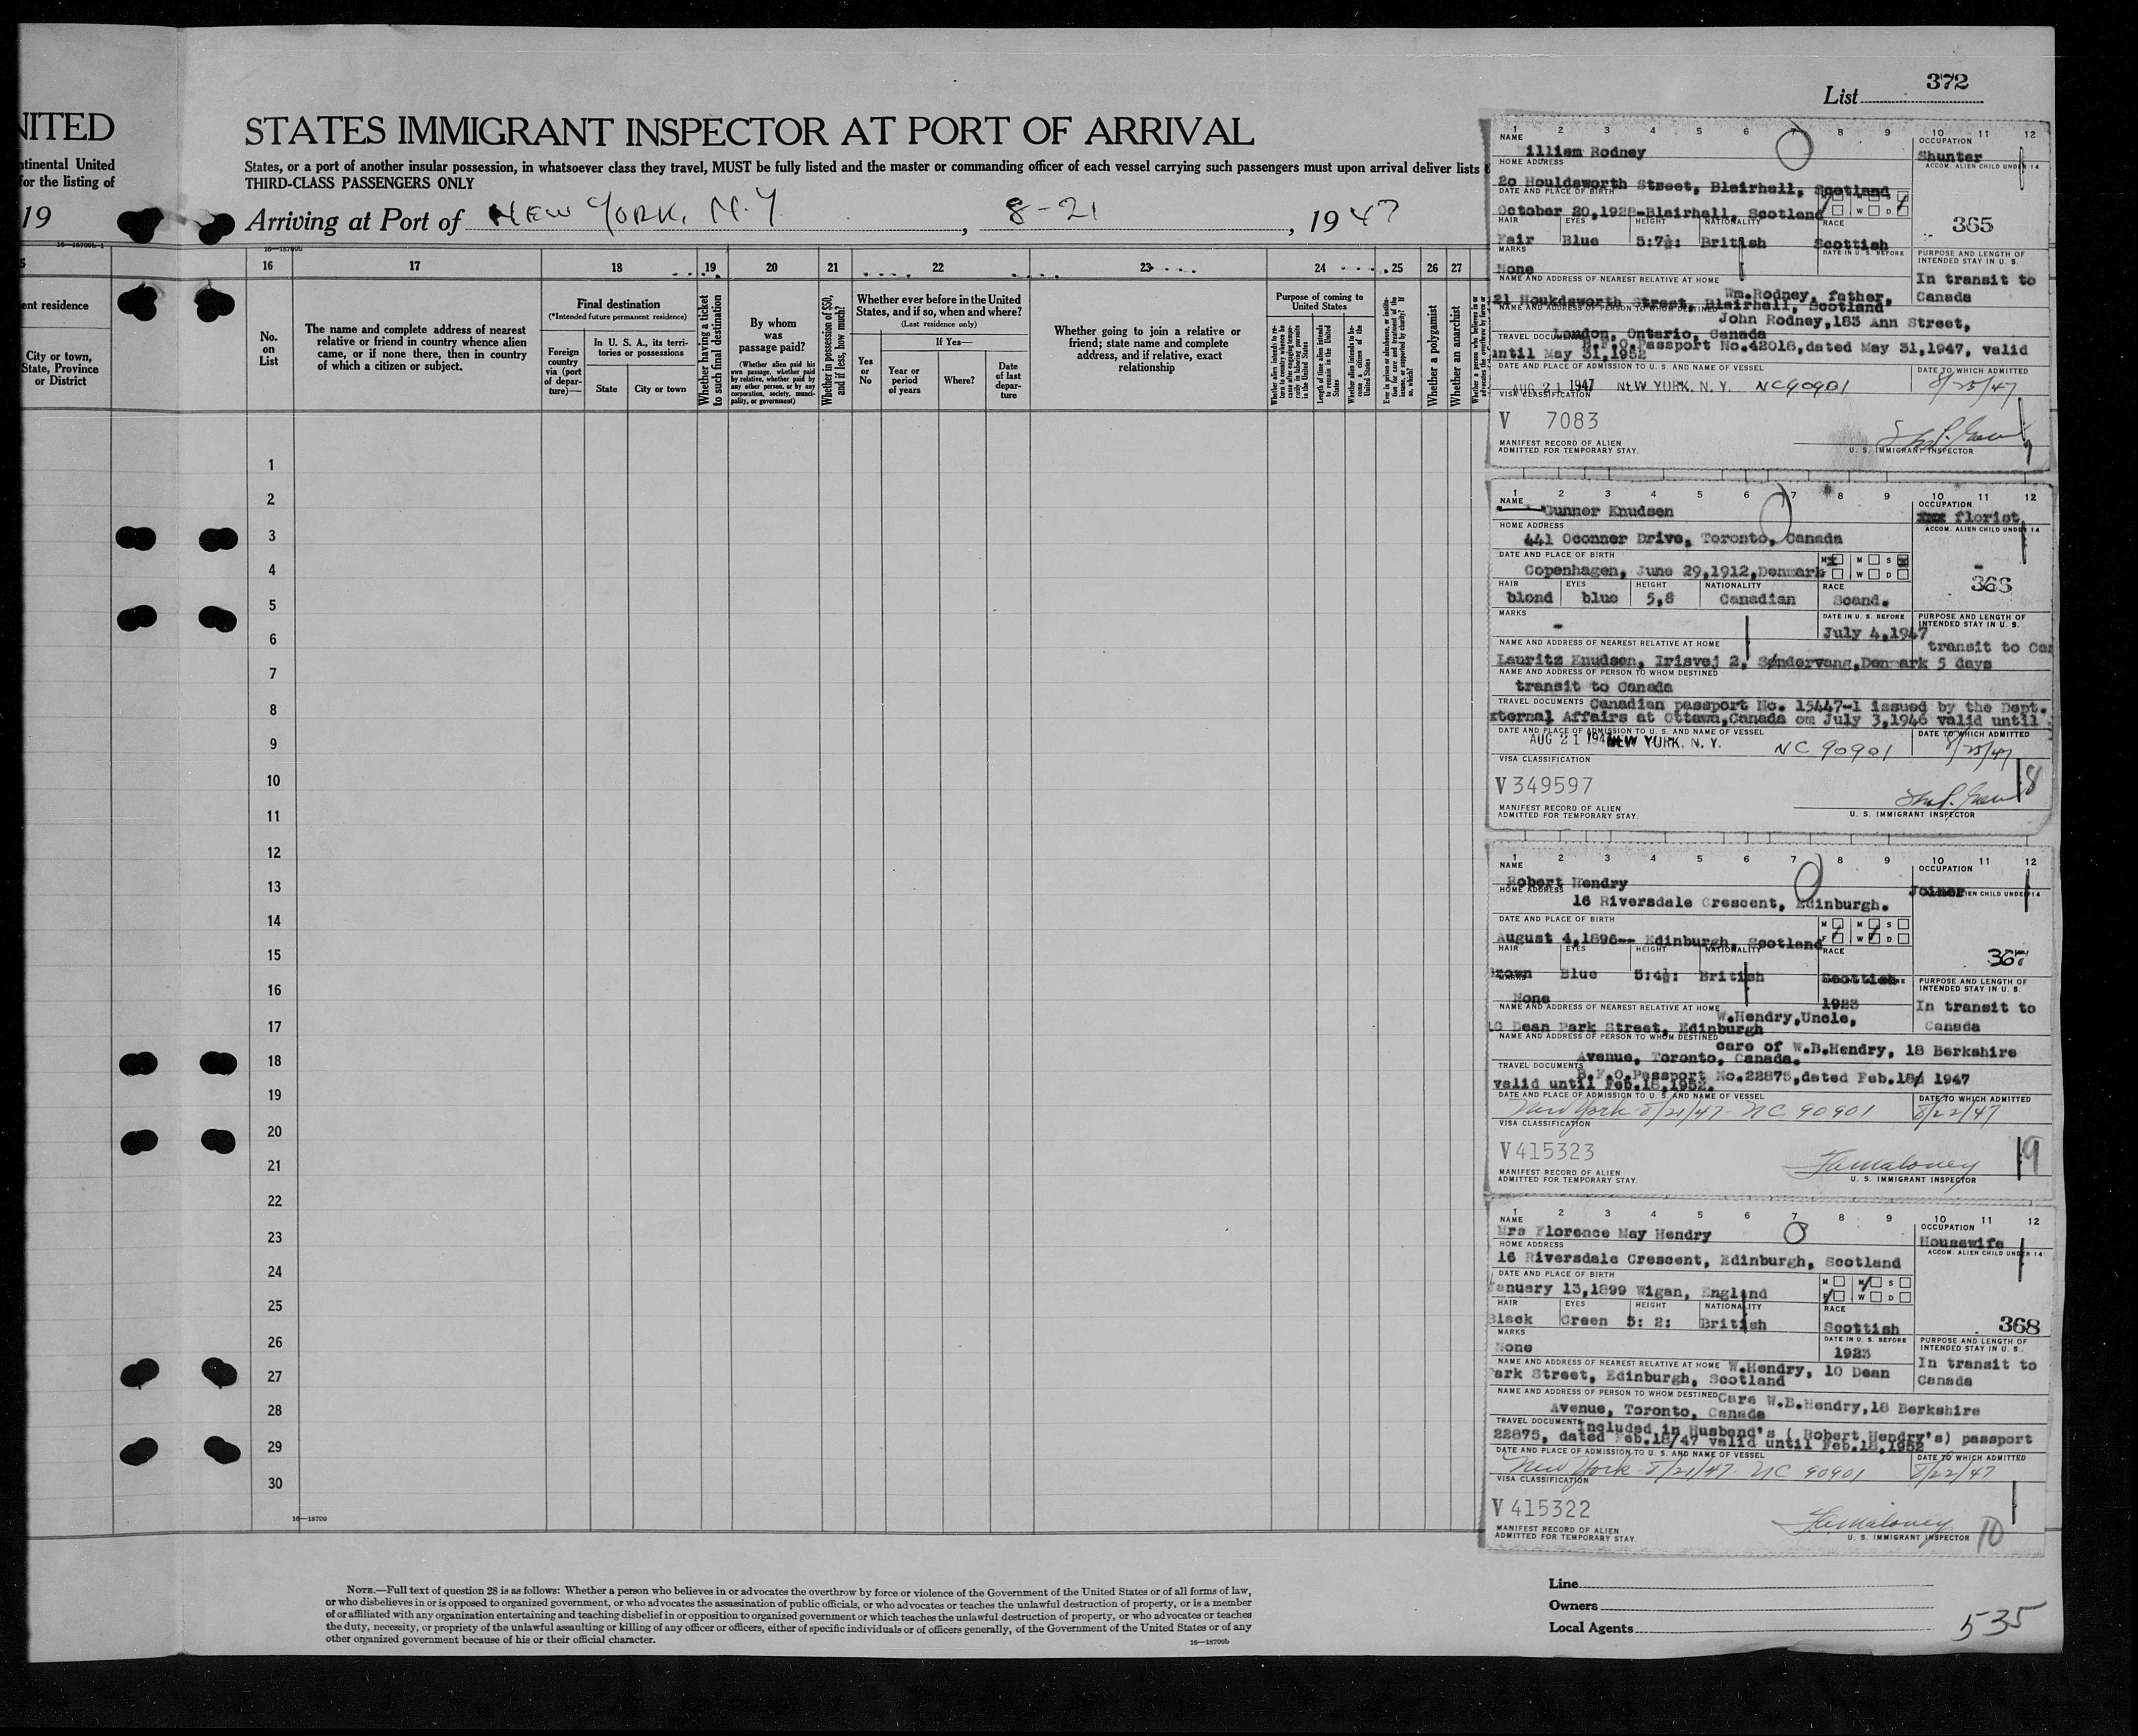 List 372
NITED
STATES IMMIGRANT INSPECTOR AT PORT OF ARRIVAL
ntinental United
for the listing of
States, or a port of another insular possession, in whatsoever class they travel, MUST be fully listed and the master or commanding officer of each vessel carrying such passengers must upon arrival deliver lists
THIRD-CLASS PASSENGERS ONLY
19
Arriving at Port of NEW YORK, N.Y. , 8-21 , 1947
16-18709b-1
16-18709b
5
16 17 18 19 20 21 22 23 24 25 26 27
ent residence
City or town,
State, Province
or District
No.
on
List
The name and complete address of nearest
relative or friend in country whence alien
came, or if none there, then in country
of which a citizen or subject.
Final destination
(*Intended future permanent residence)
Foreign
country
via (port
of depar-
ture)—
In U. S. A., its terri-
tories or possessions
State
City or town
Whether having a ticket
to such final destination
By whom
was
passage paid?
(Whether alien paid his
own passage, whether paid
by relative, whether paid
by any other person, or by any
corporation, society, munici-
pality, or government)
Whether in possession of $50,
and if less, how much?
Whether ever before in the United
States, and if so, when and where?
(Last residence only)
Yes
or
No
If Yes—
Year or
period
of years
Where?
Date
of last
depar-
ture
Whether going to join a relative or
friend; state name and complete
address, and if relative, exact
relationship
Purpose of coming to
United States
Whether a polygamist
Whether an anarchist
1
2
3
4
5
6
7
8
9
10
11
12
13
14
15
16
17
18
19
20
21
22
23
24
25
26
27
28
29
30
16—18709
1 2 3 4 5 6 7 8 9 10 11 12
NAME
illiam Rodney
OCCUPATION
Shunter
HOME ADDRESS
ACCOM. ALIEN CHILD UNDER 14
20 Houldsworth Street, Blairhall, Scotland
DATE AND PLACE OF BIRTH
October 20,1928-Blairhall, Scotland
W D
365
HAIR EYES HEIGHT NATIONALITY RACE
Fair Blue 5:7½: British Scottish
MARKS
DATE IN U. S. BEFORE
PURPOSE AND LENGTH OF
INTENDED STAY IN U. S.
None
In transit to
Canada
NAME AND ADDRESS OF NEAREST RELATIVE AT HOME
Wm.Rodney, father,
21 Houkdsworth Street, Blairhall, Scotland
NAME AND ADDRESS OF PERSON TO WHOM DESTINED
John Rodney,183 Ann Street,
London, Ontario, Canada
TRAVEL DOCUMENTS
B.F.O.Passport No.42018,dated May 31,1947, valid
until May 31,1952
DATE AND PLACE OF ADMISSION TO U. S. AND NAME OF VESSEL
DATE TO WHICH ADMITTED
AUG 21 1947 NEW YORK, N. Y. NC90901 8/25/47
VISA CLASSIFICATION
V 7083
MANIFEST RECORD OF ALIEN
ADMITTED FOR TEMPORARY STAY.
U. S. IMMIGRANT INSPECTOR
1 2 3 4 5 6 7 8 9 10 11 12
NAME
Gunner Knudsen
OCCUPATION
florist
HOME ADDRESS
ACCOM. ALIEN CHILD UNDER 14
441 Oconner Drive, Toronto, Canada
DATE AND PLACE OF BIRTH
M M S
Copenhagen, June 29,1912,Denmark
W D
366
HAIR EYES HEIGHT NATIONALITY RACE
blond blue 5,8 Canadian Scand.
MARKS
DATE IN U. S. BEFORE
PURPOSE AND LENGTH OF
INTENDED STAY IN U. S.
-
July 4,1947
transit to Can
NAME AND ADDRESS OF NEAREST RELATIVE AT HOME
Lauritz Knudsen, Irisvej 2, Søndervang,Denmark 5 days
NAME AND ADDRESS OF PERSON TO WHOM DESTINED
transit to Canada
TRAVEL DOCUMENTS
Canadian passport No. 15447-1 issued by the Dept.
xternal Affairs at Ottawa,Canada om July 3,1946 valid until
DATE AND PLACE OF ADMISSION TO U. S. AND NAME OF VESSEL
DATE TO WHICH ADMITTED
AUG 21 1947 NEW YORK, N. Y. NC 90901 8/25/47
VISA CLASSIFICATION
V 349597
8
MANIFEST RECORD OF ALIEN
ADMITTED FOR TEMPORARY STAY.
U. S. IMMIGRANT INSPECTOR
1 2 3 4 5 6 7 8 9 10 11 12
NAME
Robert Hendry
OCCUPATION
Joiner
HOME ADDRESS
16 Riversdale Crescent, Edinburgh.
DATE AND PLACE OF BIRTH
M M S
August 4,1896-- Edinburgh, Scotland
F W D
HAIR EYES HEIGHT NATIONALITY RACE
367
Brown Blue 5:4½: British Scottish
PURPOSE AND LENGTH OF
INTENDED STAY IN U. S.
None
1923
In transit to
Canada
NAME AND ADDRESS OF NEAREST RELATIVE AT HOME
W.Hendry,Uncle,
10 Dean Park Street, Edinburgh
NAME AND ADDRESS OF PERSON TO WHOM DESTINED
care of W.B.Hendry, 18 Berkshire
Avenue, Toronto, Canada.
TRAVEL DOCUMENTS
B.F.O.Passport No.22875,dated Feb.18/ 1947
valid until Feb.18,1952.
DATE AND PLACE OF ADMISSION TO U. S. AND NAME OF VESSEL
DATE TO WHICH ADMITTED
New York 8/21/47- NC 90901 8/22/47
VISA CLASSIFICATION
V 415323
FaMaloney 9
MANIFEST RECORD OF ALIEN
ADMITTED FOR TEMPORARY STAY.
U. S. IMMIGRANT INSPECTOR
1 2 3 4 5 6 7 8 9 10 11 12
NAME
Mrs Florence May Hendry
OCCUPATION
Housewife
HOME ADDRESS
ACCOM. ALIEN CHILD UNDER 14
16 Riversdale Crescent, Edinburgh, Scotland
DATE AND PLACE OF BIRTH
M M S
January 13,1899 Wigan, England
F W D
HAIR EYES HEIGHT NATIONALITY RACE
368
Black Green 5: 2: British Scottish
MARKS
DATE IN U. S. BEFORE
PURPOSE AND LENGTH OF
INTENDED STAY IN U. S.
None
1923
In transit to
Canada
NAME AND ADDRESS OF NEAREST RELATIVE AT HOME
W.Hendry, 10 Dean
Park Street, Edinburgh, Scotland
NAME AND ADDRESS OF PERSON TO WHOM DESTINED
Care W.B.Hendry,18 Berkshire
Avenue, Toronto, Canada
TRAVEL DOCUMENTS
Included in Husband's ( Robert Hendry's) passport
22875, dated Feb.18/47 valid until Feb.18,1952
DATE AND PLACE OF ADMISSION TO U. S. AND NAME OF VESSEL
DATE TO WHICH ADMITTED
New York 8/21/47- NC 90901 8/22/47
VISA CLASSIFICATION
V 415322
FaMaloney 10
MANIFEST RECORD OF ALIEN
ADMITTED FOR TEMPORARY STAY.
U. S. IMMIGRANT INSPECTOR
NOTE.—Full text of question 28 is as follows: Whether a person who believes in or advocates the overthrow by force or violence of the Government of the United States or of all forms of law,
or who disbelieves in or is opposed to organized government, or who advocates the assassination of public officials, or who advocates or teaches the unlawful destruction of property, or is a member
of or affiliated with any organization entertaining and teaching disbelief in or opposition to organized government or which teaches the unlawful destruction of property, or who advocates or teaches
the duty, necessity, or propriety of the unlawful assaulting or killing of any officer or officers, either of specific individuals or of officers generally, of the Government of the United States or of any
other organized government because of his or their official character.
16—18709b
Line
Owners
Local Agents
535